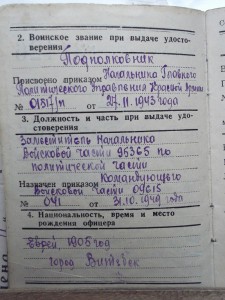 2. Воинское звание при выдаче удосто-
верения
Подполковник
Присвоено приказом Начальника Главного
Политического Управления Красной Армии
№ 01317/п от 27.11.1943 года
3. Должность и часть при выдаче удо-
стоверения
Заместитель Начальника
Войсковой части 95365 по
политической части
Назначен приказом Командующего
Войсковой Части 09615
№ 041 от 31.10.1949 года
4. Национальность, время и место
рождения офицера
Еврей, 1905 год
город Витебск